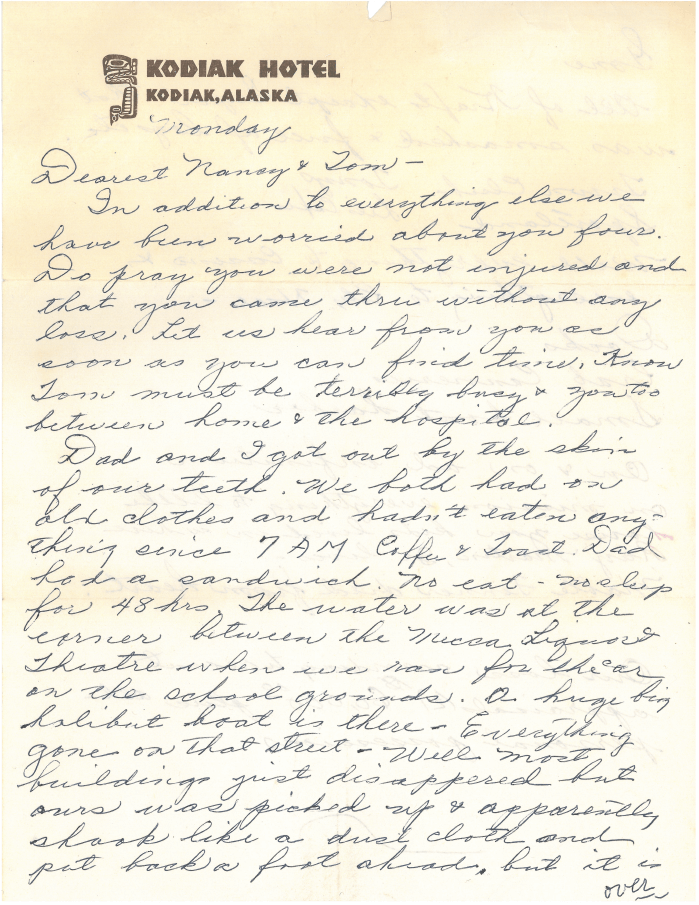 KODIAK HOTEL
KODIAK, ALASKA
Monday
Dearest Nancy & Tom -
In addition to everything else we
have been worried about you four.
Do pray you were not injured and
that you came thru without any
loss. Let us hear from you as
soon as you can find time. Know
Tom must be terribly busy & you too
between home & the hospital.
Dad and I got out by the skin
of our teeth. We both had on
old clothes and hadn't eaten any-
thing since 7 AM Coffee & Toast. Dad
had a sandwich. No eat - no sleep
for 48 hrs. The water was at the
corner between the Mecca Liquor &
Theatre when we ran for the car
on the school grounds. A huge big
halibut boat is there - Everything
gone on that street - Well most
buildings just disappered but
ours was picked up & apparently
shook like a dust cloth and
put back a foot ahead, but it is
over